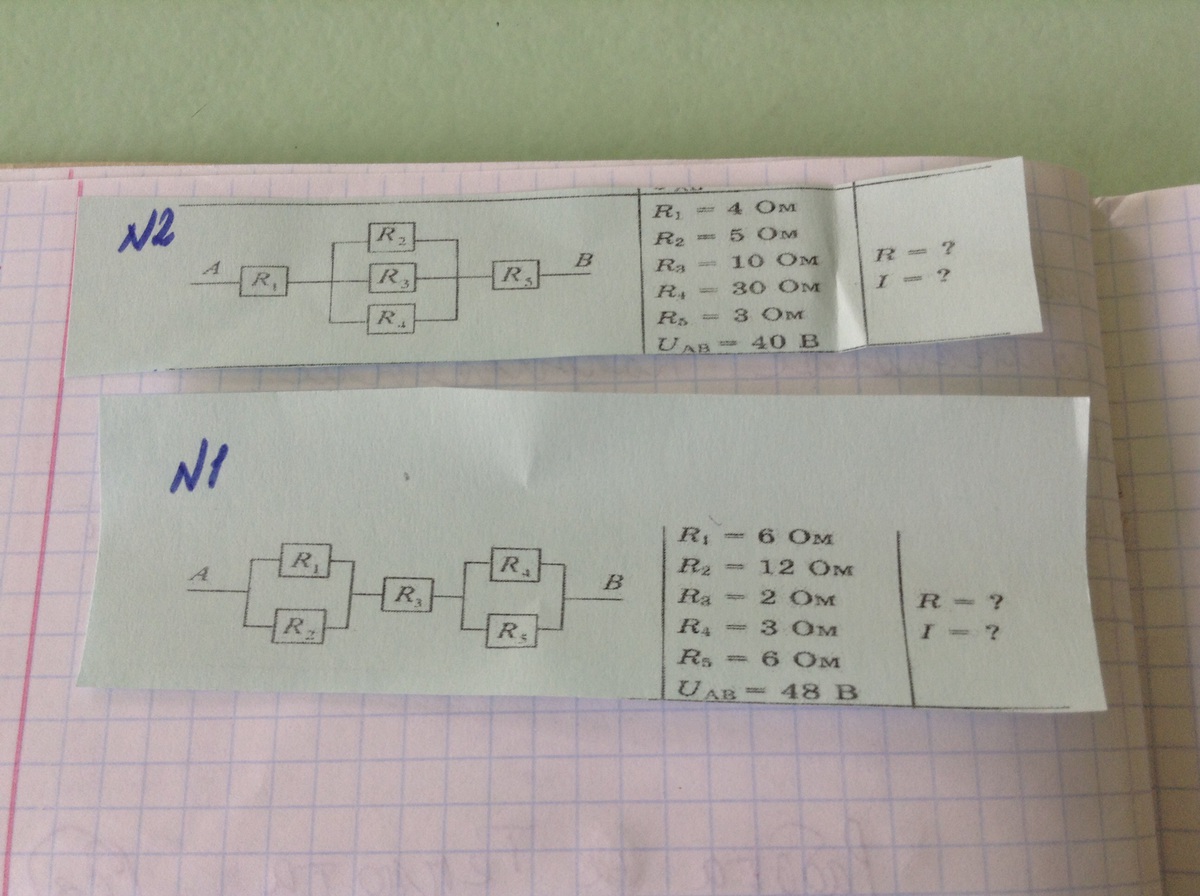 N2
A R₁ R₂ R₃ R₄ R₅ B
R₁ = 4 Ом
R₂ = 5 Ом
R₃ = 10 Ом
R₄ = 30 Ом
R₅ = 3 Ом
U_AB = 40 В
R = ?
I = ?
N1
A R₁ R₂ R₃ R₄ R₅ B
R₁ = 6 Ом
R₂ = 12 Ом
R₃ = 2 Ом
R₄ = 3 Ом
R₅ = 6 Ом
U_AB = 48 В
R = ?
I = ?